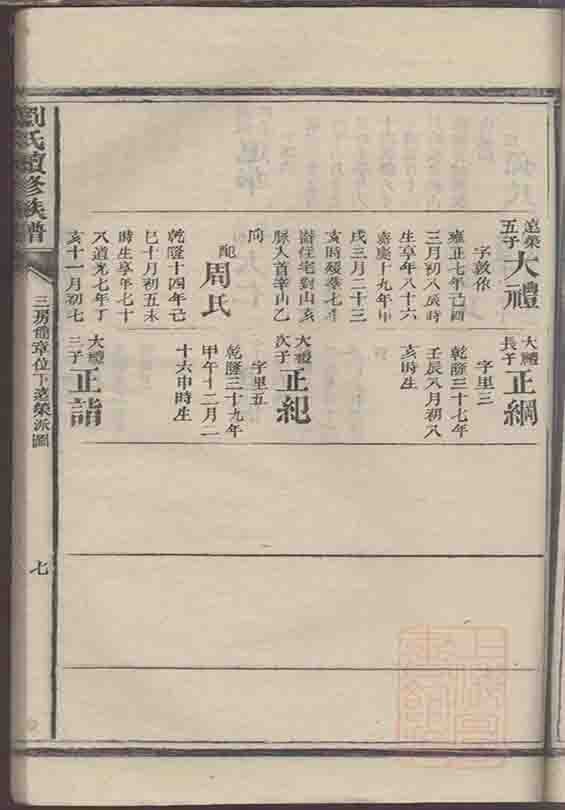 遠榮
五子
大禮
字敦依
雍正七年己酉
三月初八辰時
生享年八十六
嘉慶十九年甲
戌三月二十三
亥時殁葬七斗
衕住宅對山亥
脉入首辛山乙
向
配
周氏
乾隆十四年己
巳十月初五未
時生享年七十
八道光七年丁
亥十一月初七
大禮
長子
正綱
字里三
乾隆三十七年
壬辰八月初八
亥時生
大禮
次子
正紀
字里五
乾隆三十九年
甲午十二月二
十六申時生
大禮
三子
正詣
劉氏續修族譜
三房 章位下遠榮派圖
七